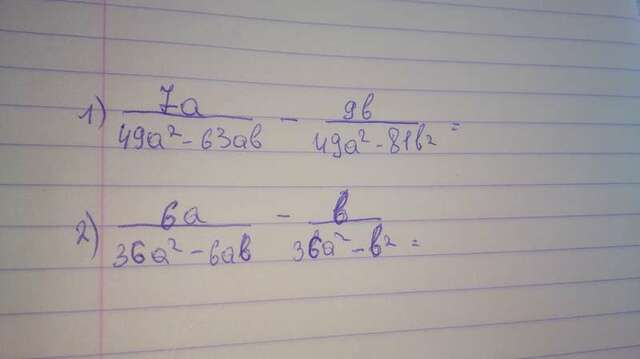 1) 7a/(49a² - 63ab) - 9b/(49a² - 81b²) =
2) 6a/(36a² - 6ab) - b/(36a² - b²) =